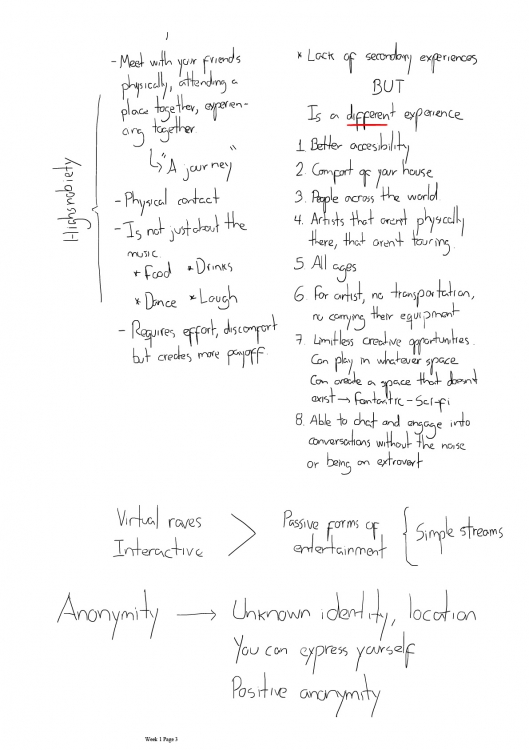 - Meet with your friends
physically, attending a
place together, experien-
cing together
↳ "A journey"
- Physical contact
- Is not just about the
music.
* Food * Drinks
* Dance * Laugh
- Requires effort, discomfort
but creates more payoff.
Highsnobiety
* Lack of secondary experiences
BUT
Is a different experience
1. Better accesibility
2. Comfort of your house
3. People across the world
4. Artists that aren't physically
there, that aren't touring.
5. All ages
6. For artist, no transportation,
no carrying their equipment
7. Limitless creative opportunities.
Can play in whatever space
Can create a space that doesn't
exist → Fantastic - Sci-fi
8. Able to chat and engage into
conversations without the noise
or being an extrovert
Virtual raves
Interactive
>
Passive forms of
entertainment
{ Simple streams
Anonymity → Unknown identity, location
You can express yourself
Positive anonymity
Week 1 Page 3